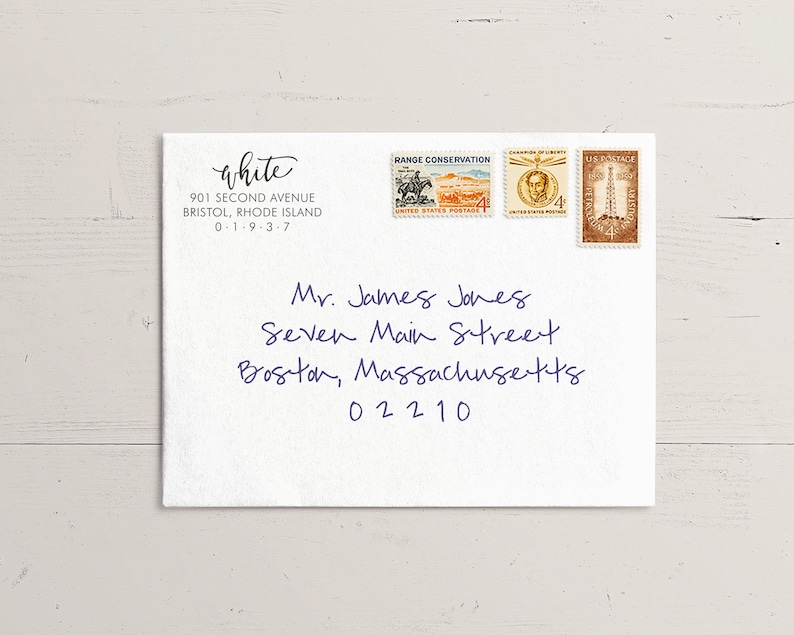 white
901 SECOND AVENUE
BRISTOL, RHODE ISLAND
0-1-9-3-7
RANGE CONSERVATION
THE TRAIL BOSS
UNITED STATES POSTAGE 4¢
CHAMPION OF LIBERTY
4¢
UNITED STATES POSTAGE
U.S. POSTAGE
1859 1959
PETROLEUM INDUSTRY
4¢
Mr. James Jones
Seven Main Street
Boston, Massachusetts
02210